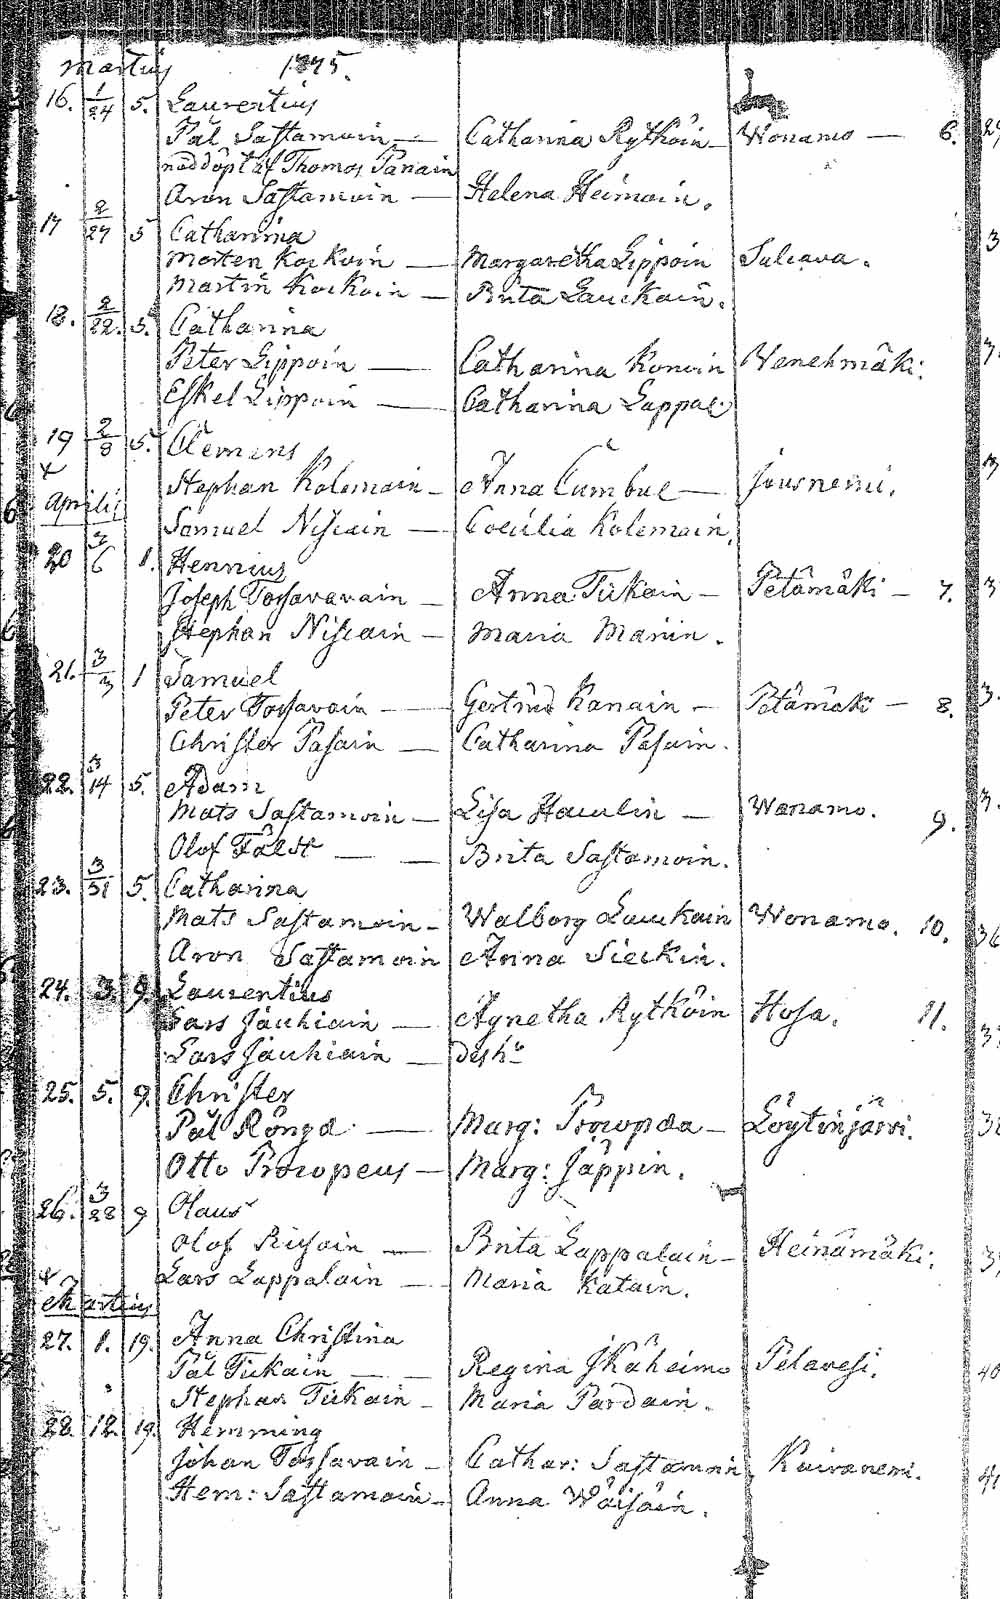 Martius 1745.
16. 1/24 5. Laurentius
Pål Sastamoin — Catharina Rytköin — Wonamo — 6.
nöddöpt af Thomas Panain
Aron Sastamoin — Helena Heimoin.
17 2/27 5 Catharina
Morten Kockoin — Margaretha Lippoin Saleava.
Martin Kockoin — Brita Lauckain.
18. 2/22. 5. Catharina
Peter Lippoin — Catharina Konoin Venehmäki.
Eskel Lippoin — Catharina Lappal:
19 2/8 5. Clemens
Stephan Kolemain — Anna Cumbul — Jousnemi.
Aprilis
Samuel Niscain — Coecilia Kolemain.
20 3/6 1. Hennius
Joseph Tossavavain — Anna Tickain — Petämäki — 7.
Stephan Niscain — Maria Manin.
21. 3/3 1 Samuel
Peter Tossavain — Gertrud Kanain — Petämäki — 8.
Christer Pasain — Catharina Pasain.
22. 3/14 5. Adam
Mats Sastamoin — Lisa Haulin — Wanamo. 9.
Olof Fält — — Brita Sastamoin.
23. 3/31 5. Catharina
Mats Sastamoin — Walborg Lauckain Wonamo. 10.
Aron Sastamoin Anna Sieckin.
24. 3. 9. Laurentius
Lars Jäuhiain — Agnetha Rytköin Hosa. 11.
Lars Jäuhiain —
25. 5. 9. Christer
Pål Rönga — Marg: Procopaea — Löytinjärvi.
Otto Procopeus — Marg: Jäppin.
26. 3/28 9 Olaus
Olof — Brita Lappalain — Heinämäki.
Lars Lappalain — Maria Katain.
Martius
27. 1. 19. Anna Christina
Pål Tickain — Regina Ikäheimo Pelavesi.
Stephan Tickain — Maria Pardain.
28. 12. 19. Hemming
Johan Tossavain — Cathar: Sastamoin Kuivanemi.
Hem: Sastamoin — Anna Wäisäin.